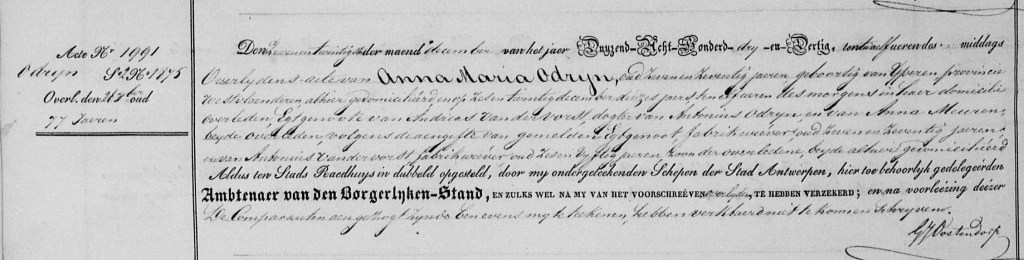 Acte No 1991
Odryn St. No 1875
Overl. den 26 Xber oud
77 Jaeren
Den zevenentwintigste der maend december van het jaer Duyzend-Acht-Honderd-dry-en-Dertig, ten twaelf ueren des middags
Overlydens-acte van Anna Maria Odryn, oud zevenenzeventig jaeren, geboortig van Yperen provincie
Westvlaenderen, alhier gedomicilieerd en op zesentwintig december dezes ten ueren des morgens in haer domicilie
overleden, Egtgenoote van Andreas Vandervordt, dogter van Antonius Odryn, en van Anna Meuren
beyde overleden, volgens de aengifte van gemelden Egtgenoot, fabrikwéver oud zevenenzeventig jaeren
en van Antonius Vandervordt fabrikwéver oud zesenvyftig jaeren, zoon der overledene, beyde alhier gedomicilieerd
Aldus ten Stads Raedhuys in dubbeld opgesteld, door my ondergeteekenden Schepen der Stad Antwerpen, hier toe behoorlyk gedelegeérden
Ambtenaer van den Borgerlyken-Stand, EN ZULKS WEL NA MY VAN HET VOORSCHREÉVEN overlyden, TE HEBBEN VERZEKERD; en na voorleézing deézer
De Comparanten aengezogt zynde benevens my te teekenen, hebben verklaerd niet te konnen schryven.
Oostendorp